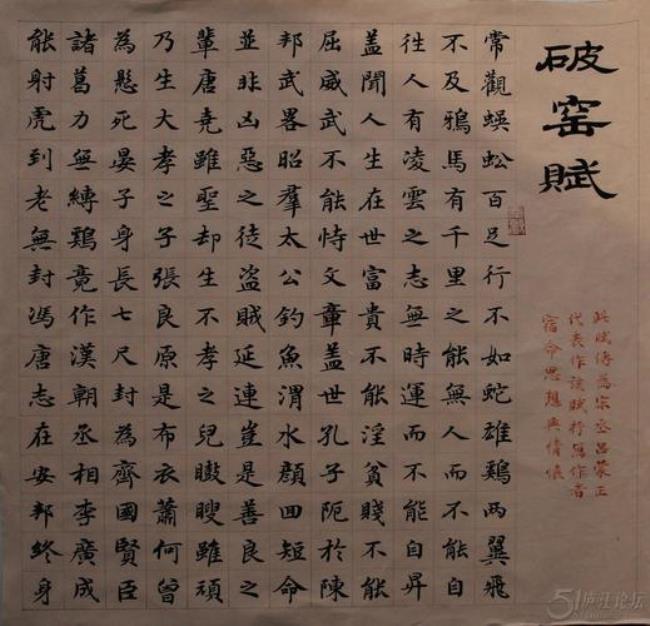 破窑賦
常觀蜈蚣百足行不如蛇雄鷄兩翼飛
不及鴉馬有千里之能無人而不能自
往人有凌雲之志無時運而不能自昇
盖聞人生在世富貴不能淫貧賤不能
屈威武不能恃文章盖世孔子阨於陳
邦武畧昭羣太公釣魚渭水顏回短命
並非凶惡之徒盜賊延連豈是善良之
輩唐堯雖聖却生不孝之兒瞰瞍雖頑
乃生大孝之子張良原是布衣蕭何曾
為懸死晏子身長七尺封為齊國賢臣
諸葛力無縛鷄竟作漢朝丞相李廣成
能射虎到老無封馮唐志在安邦終身
此賦傳為宋丞呂蒙正
代表作該賦抒寫作者
宿命思想與情懷
51庐江论坛